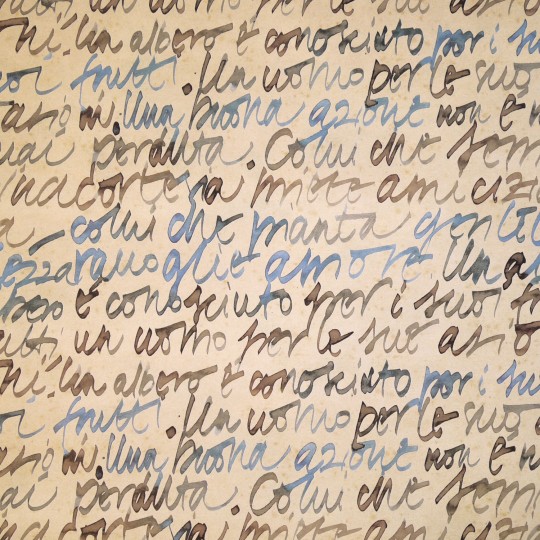 un uomo per le sue azio
ni. Un albero è conosciuto per i su
oi frutti. Un uomo per le sue
azio ni. Una buona azione non è m
mai perduta. Colui che sem
ina cortesia miete amicizi
a colui che pianta gentil
ezza raccoglie amore Un al
bero è conosciuto per i suoi fr
utti un uomo per le sue azio
ni. Un albero è conosciuto per i su
oi frutti. Un uomo per le sue
azio ni. Una buona azione non è m
mai perduta. Colui che sem
ina cortesia miete amicizi